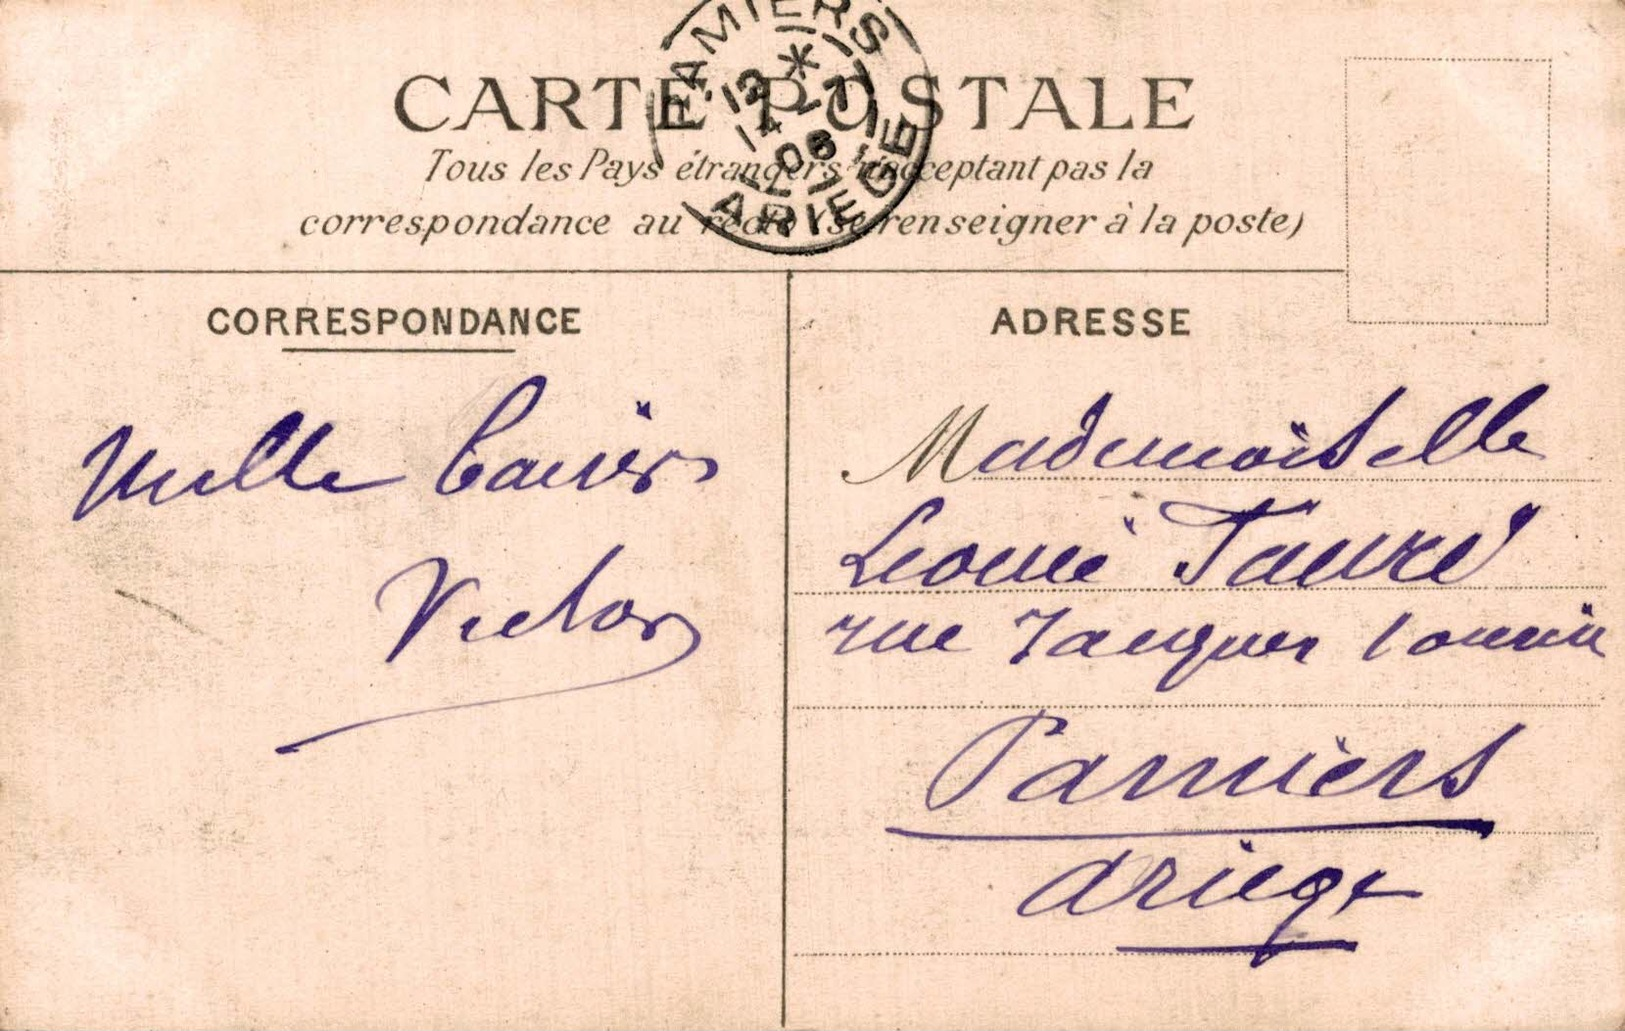 PAMIERS
ARIEGE
06
CARTE POSTALE
Tous les Pays étrangers n'acceptent pas la
correspondance au recto (se renseigner à la poste)
CORRESPONDANCE
ADRESSE
Mille Baisers
Victor
Mademoiselle
Léonie Fauré
rue Jacques
Pamiers
Ariège